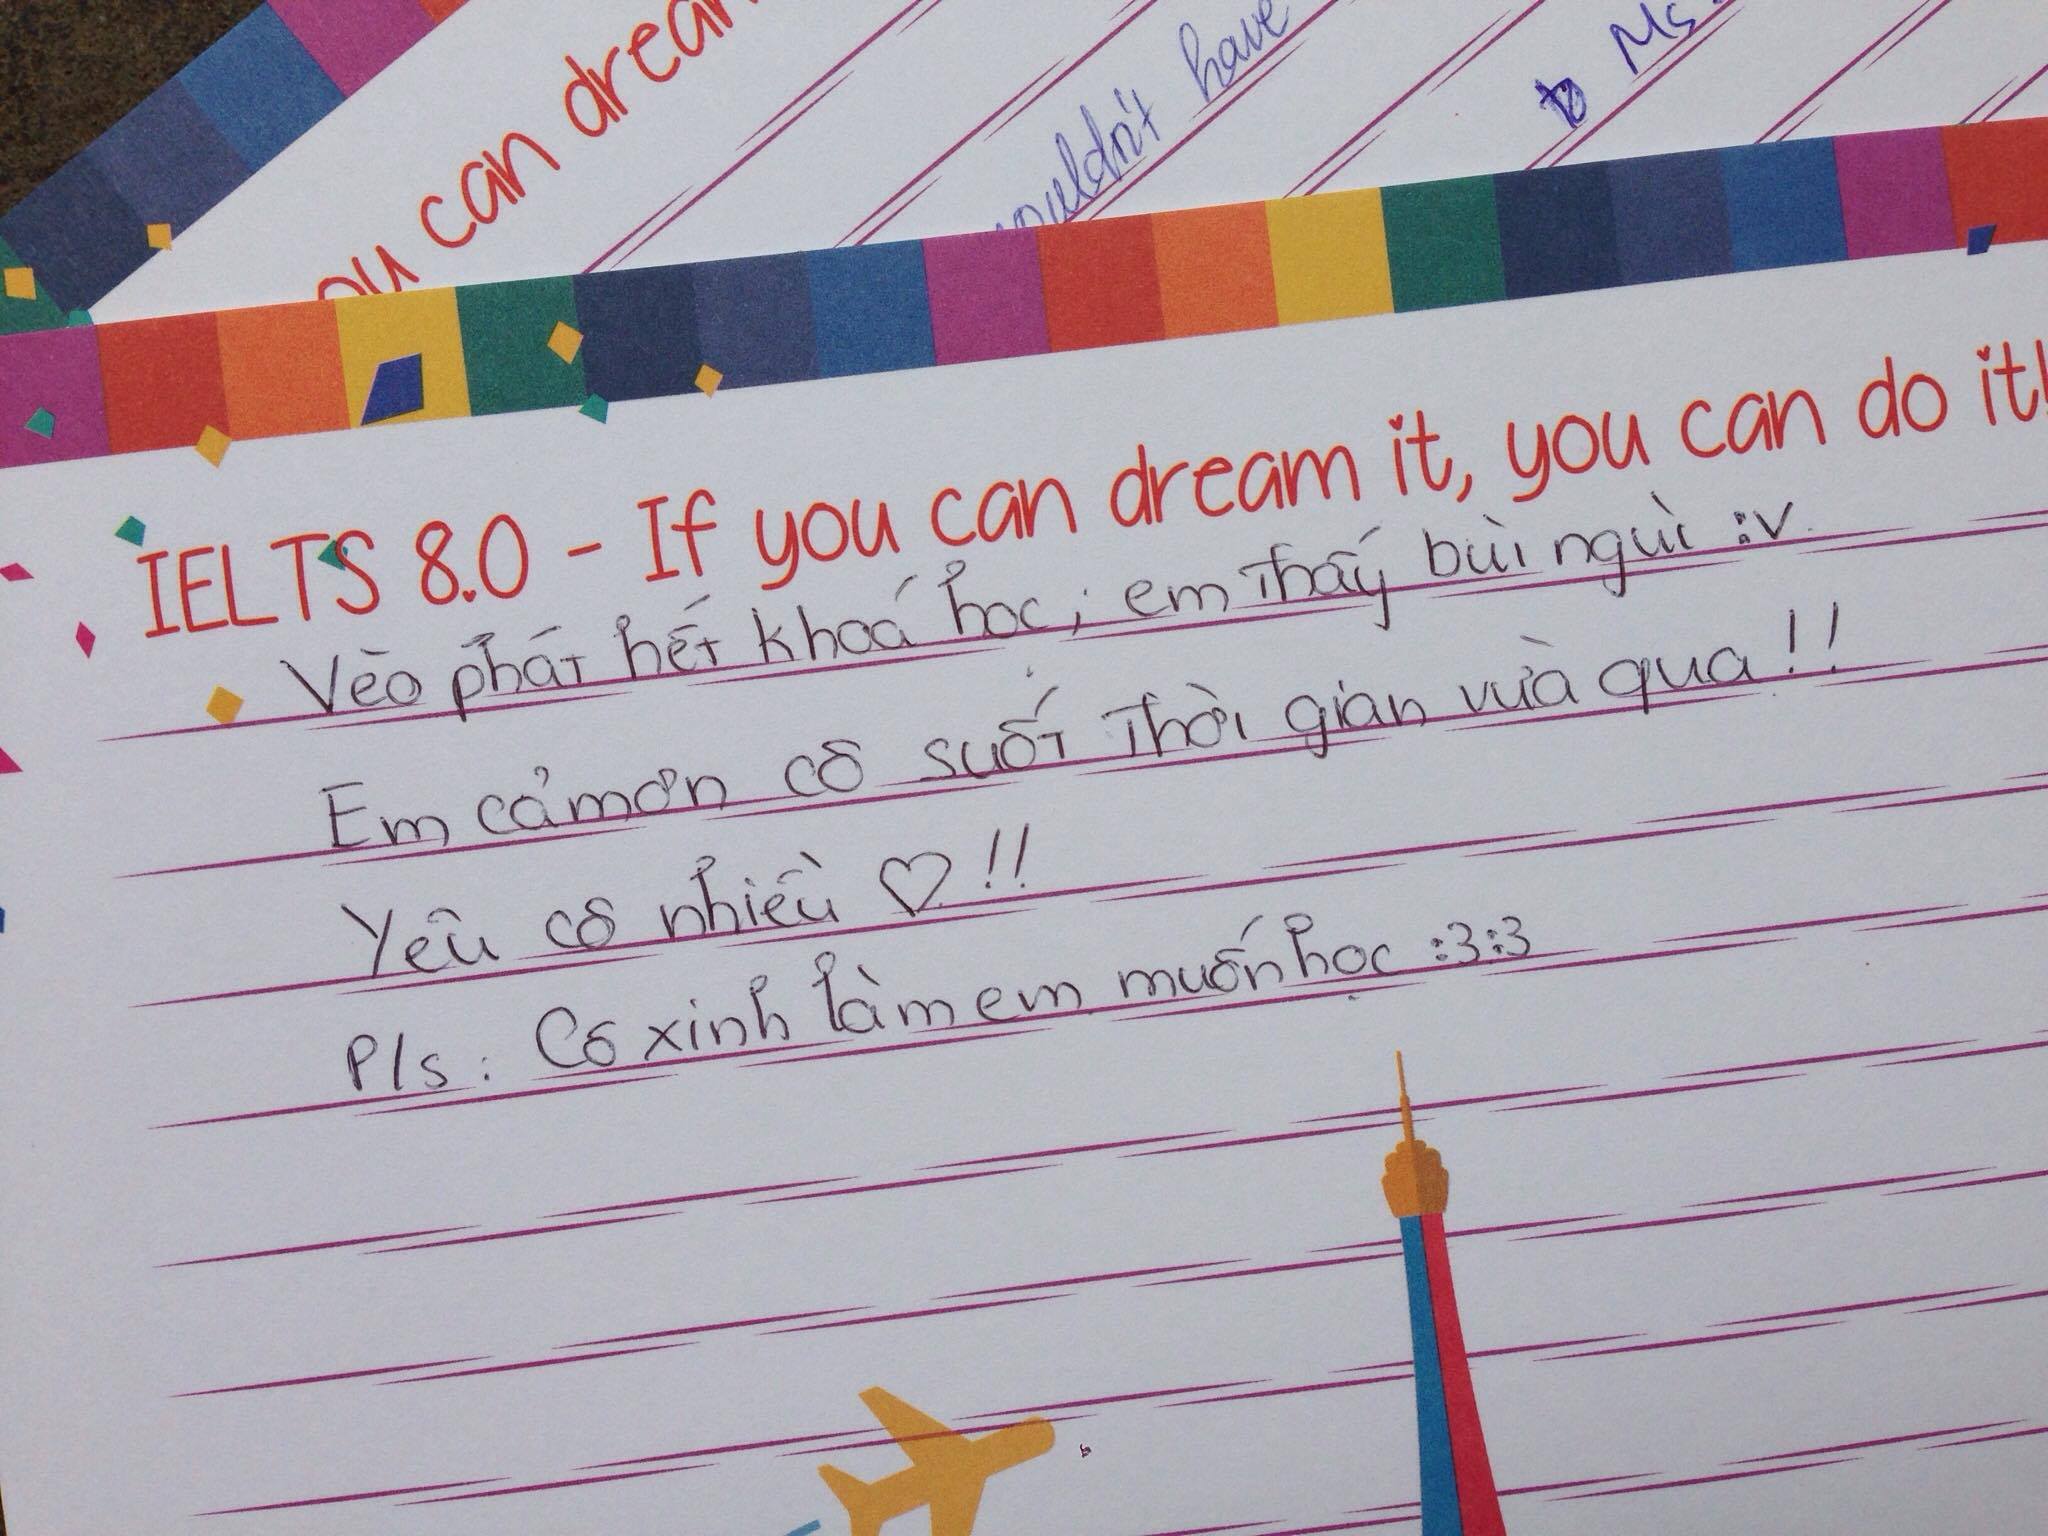 ou can dream
wouldn't have
to Ms.
IELTS 8.0 - If you can dream it, you can do it!
Vèo phát hết khoá học, em thấy bùi ngùi :v.
Em cảm ơn cô suốt thời gian vừa qua!!
Yêu cô nhiều ♡!!
P/s: Cô xinh làm em muốn học :3:3